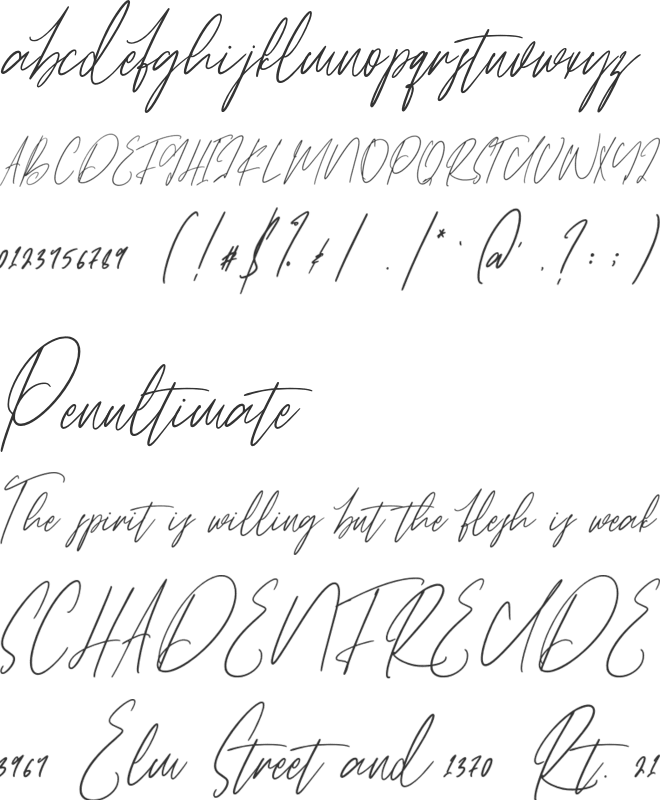 abcdefghijklmnopqrstuvwxyz
ABCDEFGHIJKLMNOPQRSTUVWXYZ
0123456789 ( ! # $ % & / . / * ' @ ' , ? : ; )
Penultimate
The spirit is willing but the flesh is weak
SCHADENFREUDE
3967 Elm Street and 1370 Rt. 21